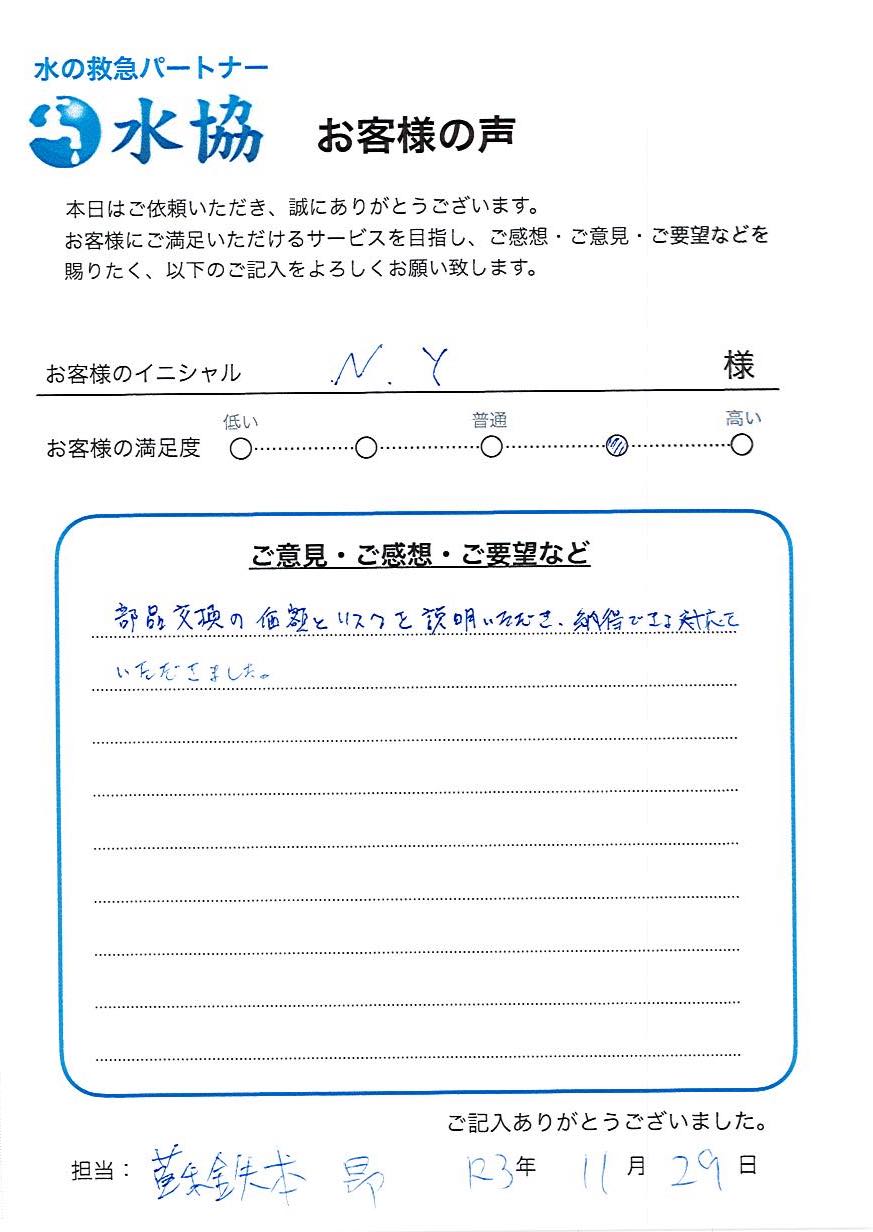 水の救急パートナー
水協
お客様の声
本日はご依頼いただき、誠にありがとうございます。
お客様にご満足いただけるサービスを目指し、ご感想・ご意見・ご要望などを
賜りたく、以下のご記入をよろしくお願い致します。
お客様のイニシャル N.Y 様
低い 普通 高い
お客様の満足度
ご意見・ご感想・ご要望など
部品交換の価額とリスクを説明いただき、納得できる対応で
いただきました。
ご記入ありがとうございました。
担当： 蘇鉄本 昂 R3年 11月 29日